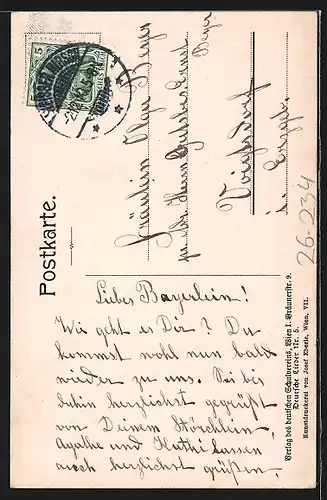 Postkarte.
5
Fräulein Olga Beyer
Beyer
Voigtsdorf
i. Erzgeb.
26-234
Liebes Bayerlein!
Wie geht es Dir? Du
kommst wohl nun bald
wieder zu uns. Sei bis
dahin herzlichst gegrüßt
von Deinem Störchlein,
Agathe und Käthi lassen
auch herzlichst grüßen.
Verlag des deutschen Schulvereins, Wien I. Bräunerstr. 9.
Deutsche Lieder Nr. 5.
Kunstdruckerei von Josef Eberle, Wien, VII.